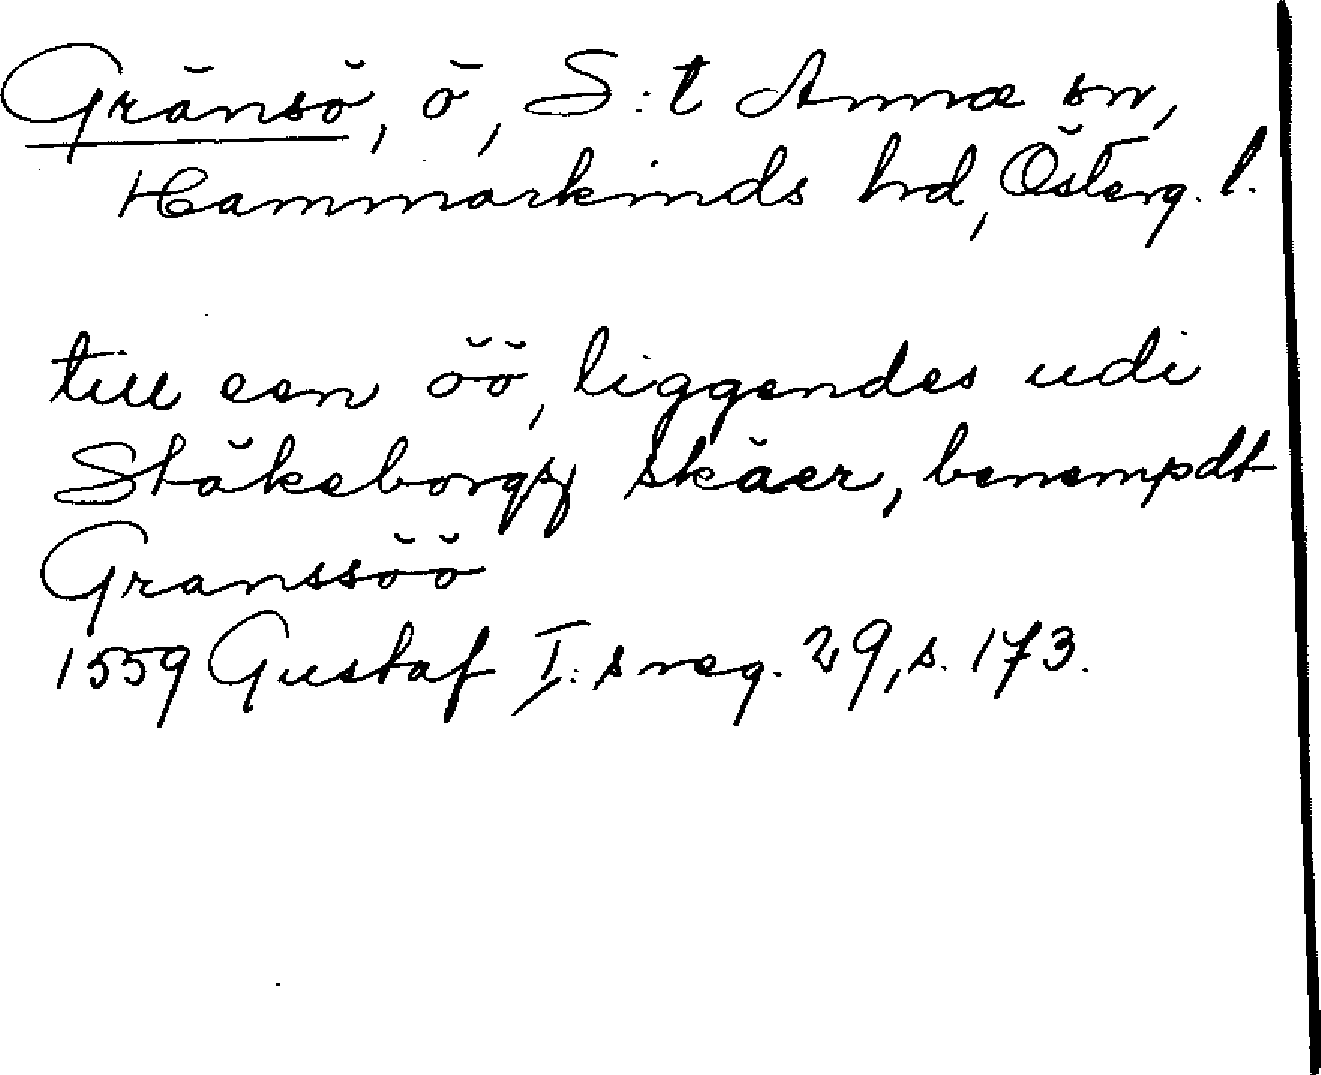 Gränsö, ö, S:t Anna sn,
Hammarkinds hd, Österg. l.
till een öö, liggendes udi
Stäkeborgs skäer, benempdt
Granssöö
1559 Gustaf I:s reg. 29, s. 173.